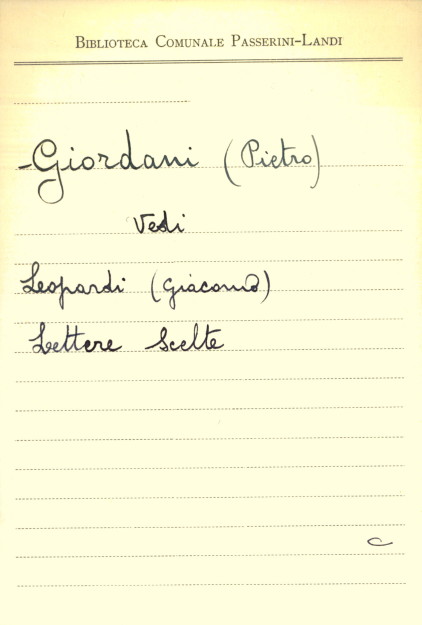 BIBLIOTECA COMUNALE PASSERINI-LANDI
-Giordani (Pietro)
Vedi
Leopardi (Giacomo)
Lettere Scelte
C